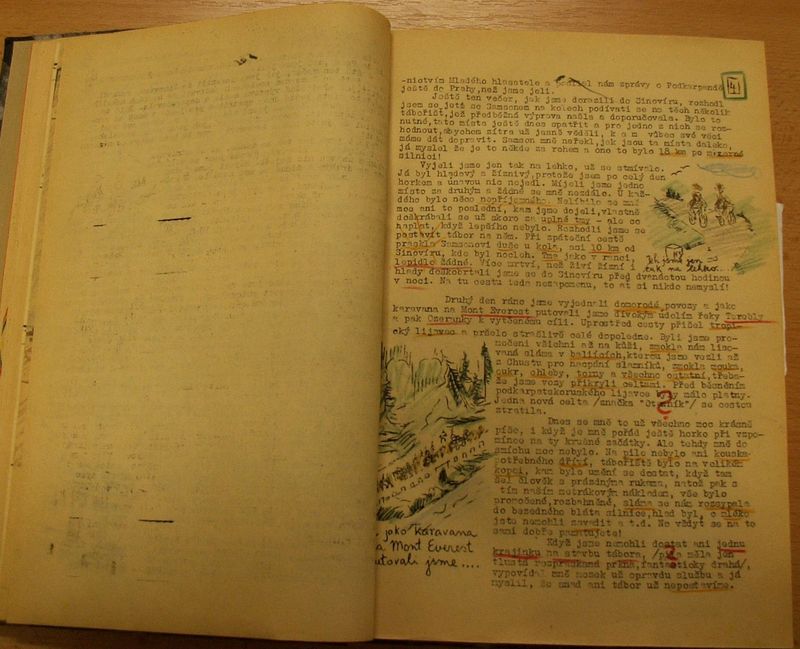 4
-nictvím Mladého hlasatele a podíval nám zprávy o Podkarpandě
ještě do Prahy, než jsme jeli.
Ještě ten večer, jak jsme dorazili do Sinovíru, rozhodl
jsem se jetě se Samsonem na kolech podívati se na těch několik
tábořišť, jež předběžná výprava našla a doporučovala. Bylo to
nutné, tato místa ještě dnes spatřit a pro jedno z nich se roz-
hodnout, abychom zítra už jasně věděli, k a m vůbec své věci
máme dát dopravit. Samson mně neřekl, jak jsou ta místa daleko,
já myslel že je to někde za rohem a ono to bylo 18 km po mizerné
silnici!
Vyjeli jsme jen tak na lehko, už se stmívalo.
Já byl hladový a žíznivý, protože jsem po celý den
horkem a únavou nic nejedl. Míjeli jsme jedno
místo za druhým a žádné se mně nezdálo. U kaž-
dého bylo něco nepříjemného. Nelíbilo se mně
moc ani to poslední, kam jsme dojeli, vlastně
doškrábali se už skoro za úplné tmy - ale co
naplat, když lepšího nebylo. Rozhodli jsme se
postavit tábor na něm. Při zpáteční cestě
prasklo Samsonovi duše u kola, asi 10 km od
Sinovíru, kde byl nocleh. Tma jako v ranci,
lepidlo žádné. Více mrtví, než živí žízní i
hlady doškobrtali jsme se do Sinovíru před dvanáctou hodinou
v noci. Na tu cestu teda nezapomenu, to at si nikdo nemyslí!
Jeli jsme jen
tak na lehko...
Druhý den ráno jsme vyjednali domorodé povozy a jako
karavana na Mont Everest putovali jsme divokým údolím řeky Terebly
a pak Ozerjanky k vytčenému cíli. Uprostřed cesty přišel tropi-
cký lijavec a pršelo strašlivě celé dopoledne. Byli jsme pro-
močeni všichni až na kůži, zmokla nám liso-
vaná sláma v balících, kterou jsme vezli až
z Chustu pro nacpání slamníků, zmokla mouka,
cukr, chleby, torny a všechno ostatní, třeba-
že jsme vozy přikryli celtami. Před běsněním
podkarpatskoruského lijavce byly málo platny.
Jedna nová celta /značka "Otazník"/ se cestou
ztratila.
?
Dnes se mně to už všechno moc krásně
píše, i když je mně pořád ještě horko při vzpo-
mínce na ty krušné začátky. Ale tehdy mně do
smíchu moc nebylo. Na pile nebylo ani kouska
potřebného dříví, tábořiště bylo na velikém
kopci, kam bylo umění se dostat, když tam
šel člověk s prázdnýma rukama, natož pak s
tím naším metrákovým nákladem, vše bylo
promočené, rozbahněné, sláma se nám rozsypala
do bezedného bláta silnice, hlad byl, o mléko
jste nemohli zavadit a t.d. No vždyt se na to
sami dobře pamatujete!
Když jsme nemohli dostat ani jednu
krajinku na stavbu tábora, /pila měla jen
tlustá rozpraskaná prkna, fantasticky drahá/,
vypovídal mně mozek už opravdu službu a já
myslil, že snad ani tábor už nepostavíme.
.. jako karavana
na Mont Everest
putovali jsme ....